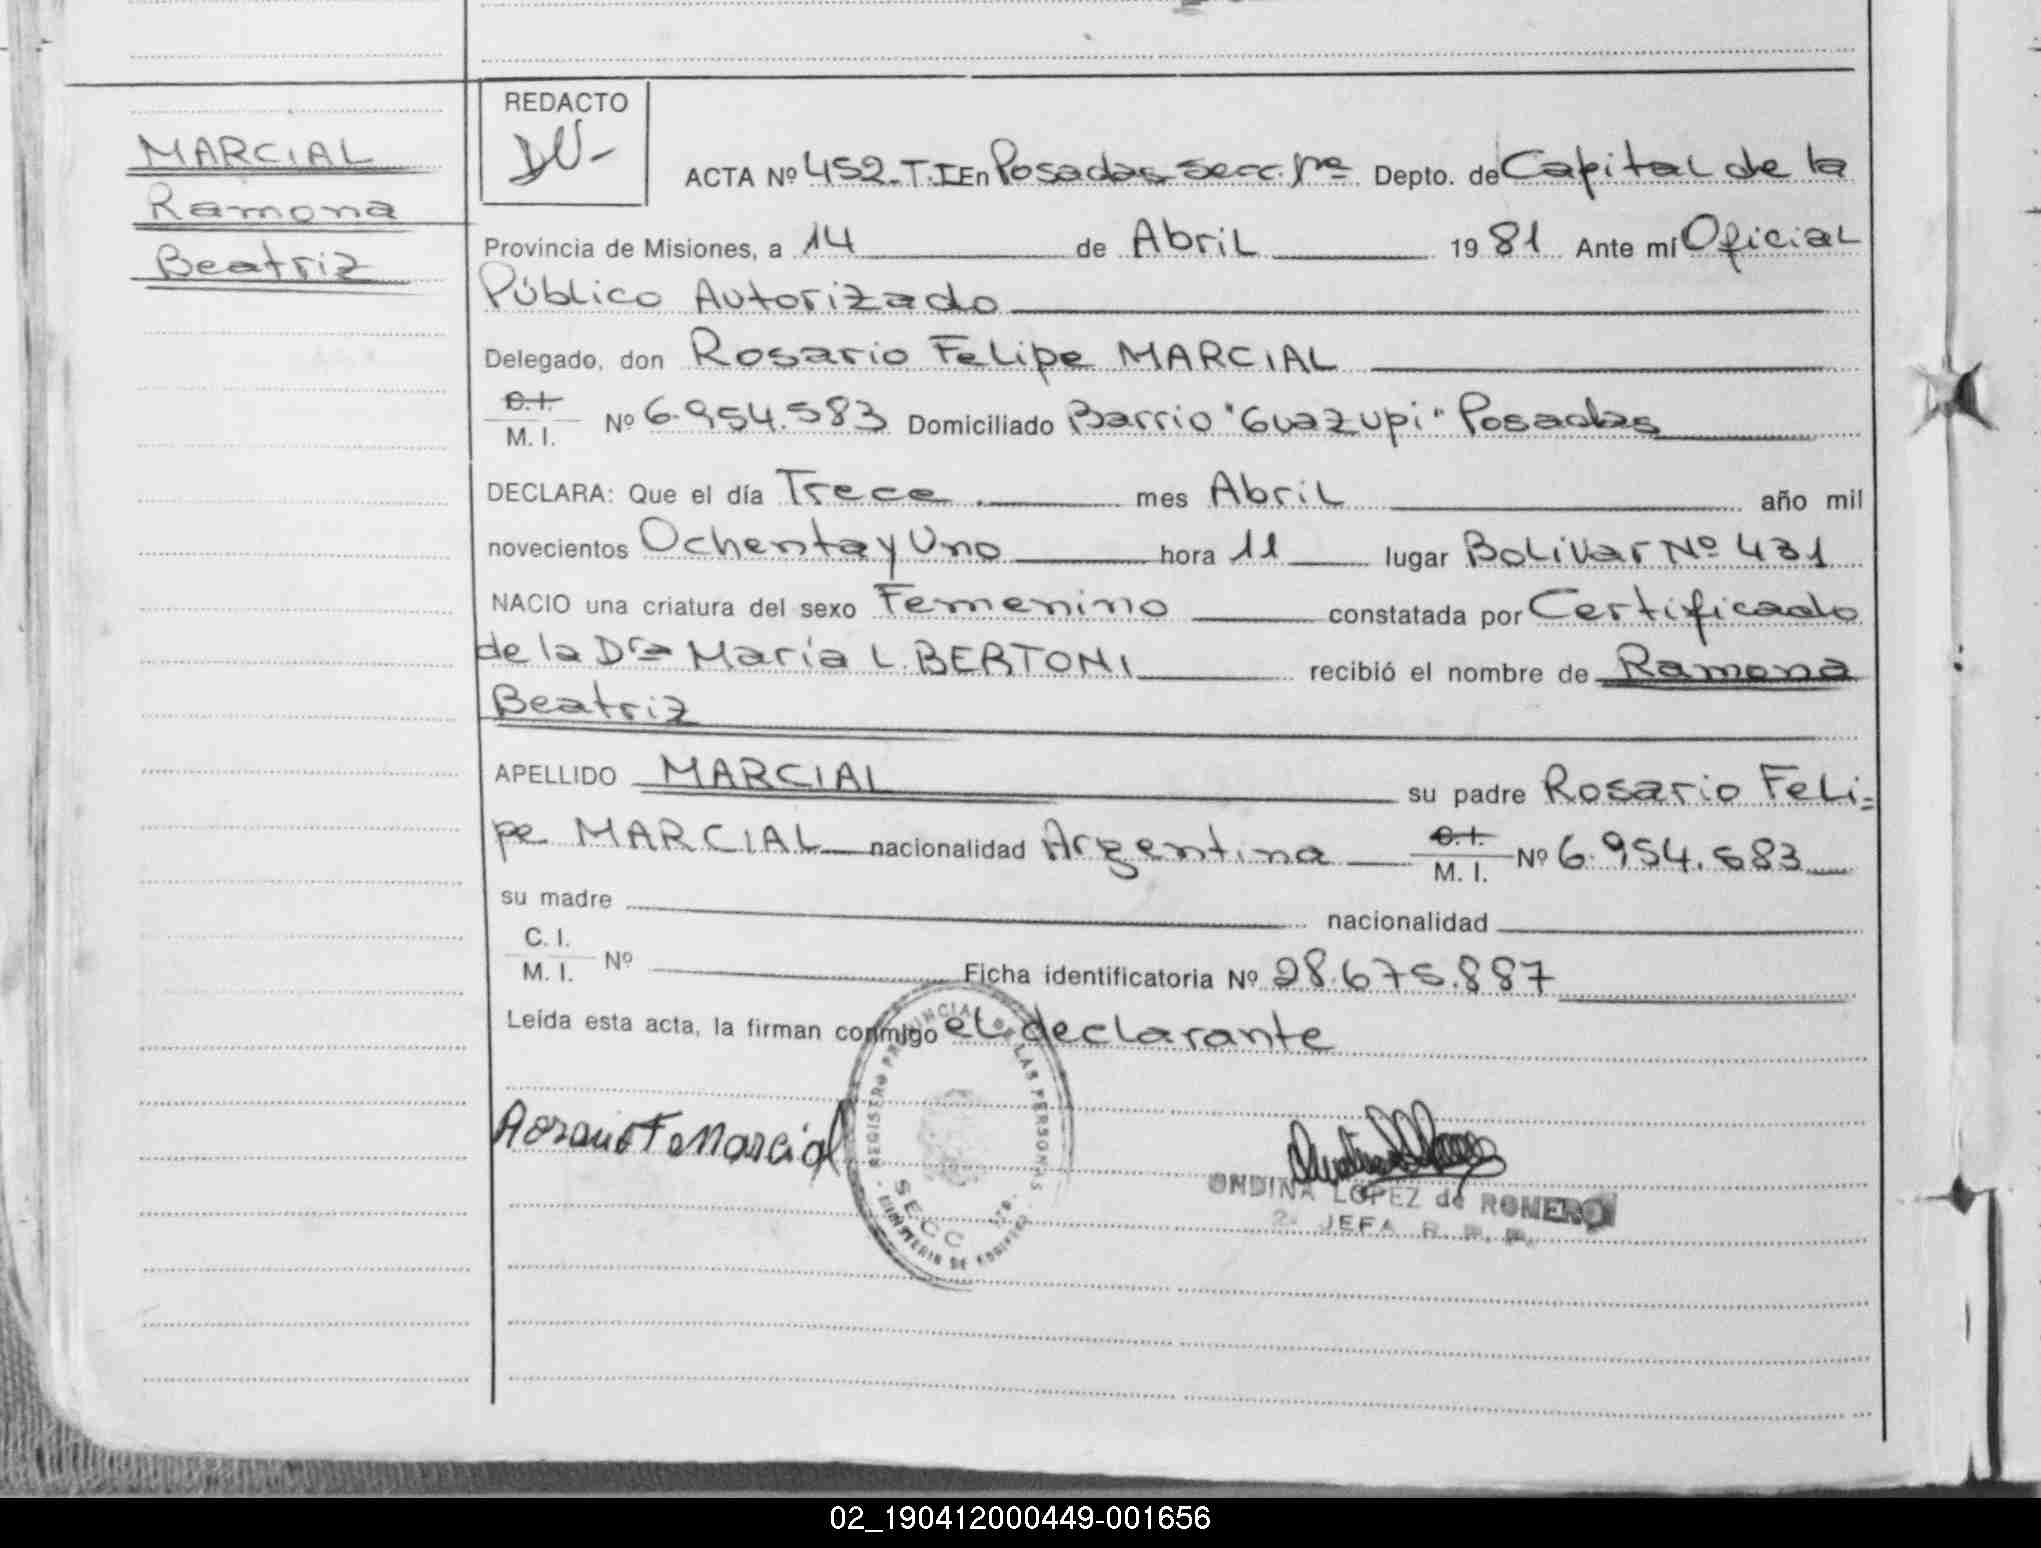 MARCIAL
Ramona
Beatriz
REDACTO
ACTA Nº 452. T. I En Posadas secc. 1ra Depto. de Capital de la
Provincia de Misiones, a 14 de Abril 19 81 Ante mí Oficial
Público Autorizado
Delegado, don Rosario Felipe MARCIAL
C. I.
M. I. Nº 6.954.583 Domiciliado Barrio "Guazupi" Posadas
DECLARA: Que el día Trece mes Abril año mil
novecientos Ochenta y Uno hora 11 lugar Bolivar Nº 431
NACIO una criatura del sexo Femenino constatada por Certificado
de la Dra María L. BERTONI recibió el nombre de Ramona
Beatriz
APELLIDO MARCIAL su padre Rosario Feli=
pe MARCIAL nacionalidad Argentina C. I. M. I. Nº 6.954.583
su madre nacionalidad
C. I.
M. I. Nº Ficha identificatoria Nº 28.675.887
Leída esta acta, la firman conmigo el declarante
Marcial
REGISTRO PROVINCIAL DE LAS PERSONAS
SECC
MINISTERIO DE GOBIERNO
ONDINA LOPEZ de ROMERO
2ª JEFA R. P. P.
02_190412000449-001656